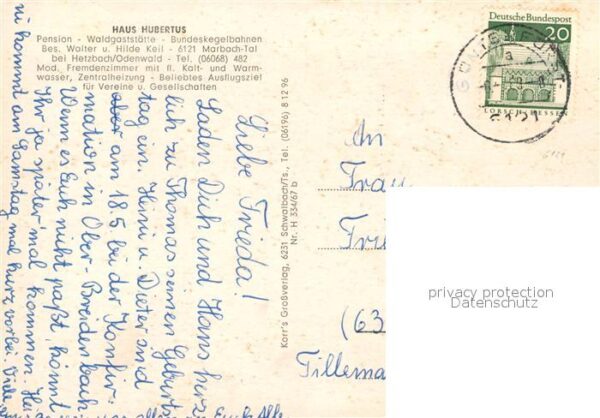 HAUS HUBERTUS
Pension - Waldgaststätte - Bundeskegelbahnen
Bes. Walter u. Hilde Keil - 6121 Marbach-Tal
bei Hetzbach/Odenwald - Tel. (06068) 482
Mod. Fremdenzimmer mit fl. Kalt- und Warm-
wasser, Zentralheizung - Beliebtes Ausflugsziel
für Vereine u. Gesellschaften
Deutsche Bundespost
20
LORSCH/HESSEN
6121
Liebe Frieda!
Laden Dich und Hans herz-
lich zu Thomas seinen Geburts
tag ein. Heini u. Dieter sind
aber am 18.5 bei der Konfir-
mation in Ober-Breidenbach
Wenn es Euch nicht paßt, könnt
Ihr ja später mal kommen.
ni kommt am Samstag mal kurz vorbei. Viele
Euch Alle
Korr's Großverlag, 6231 Schwalbach/Ts., Tel. (06196) 8 12 96
Nr. H 334/67 b
An
Frau
Fri
(63
Tillema
privacy protection
Datenschutz